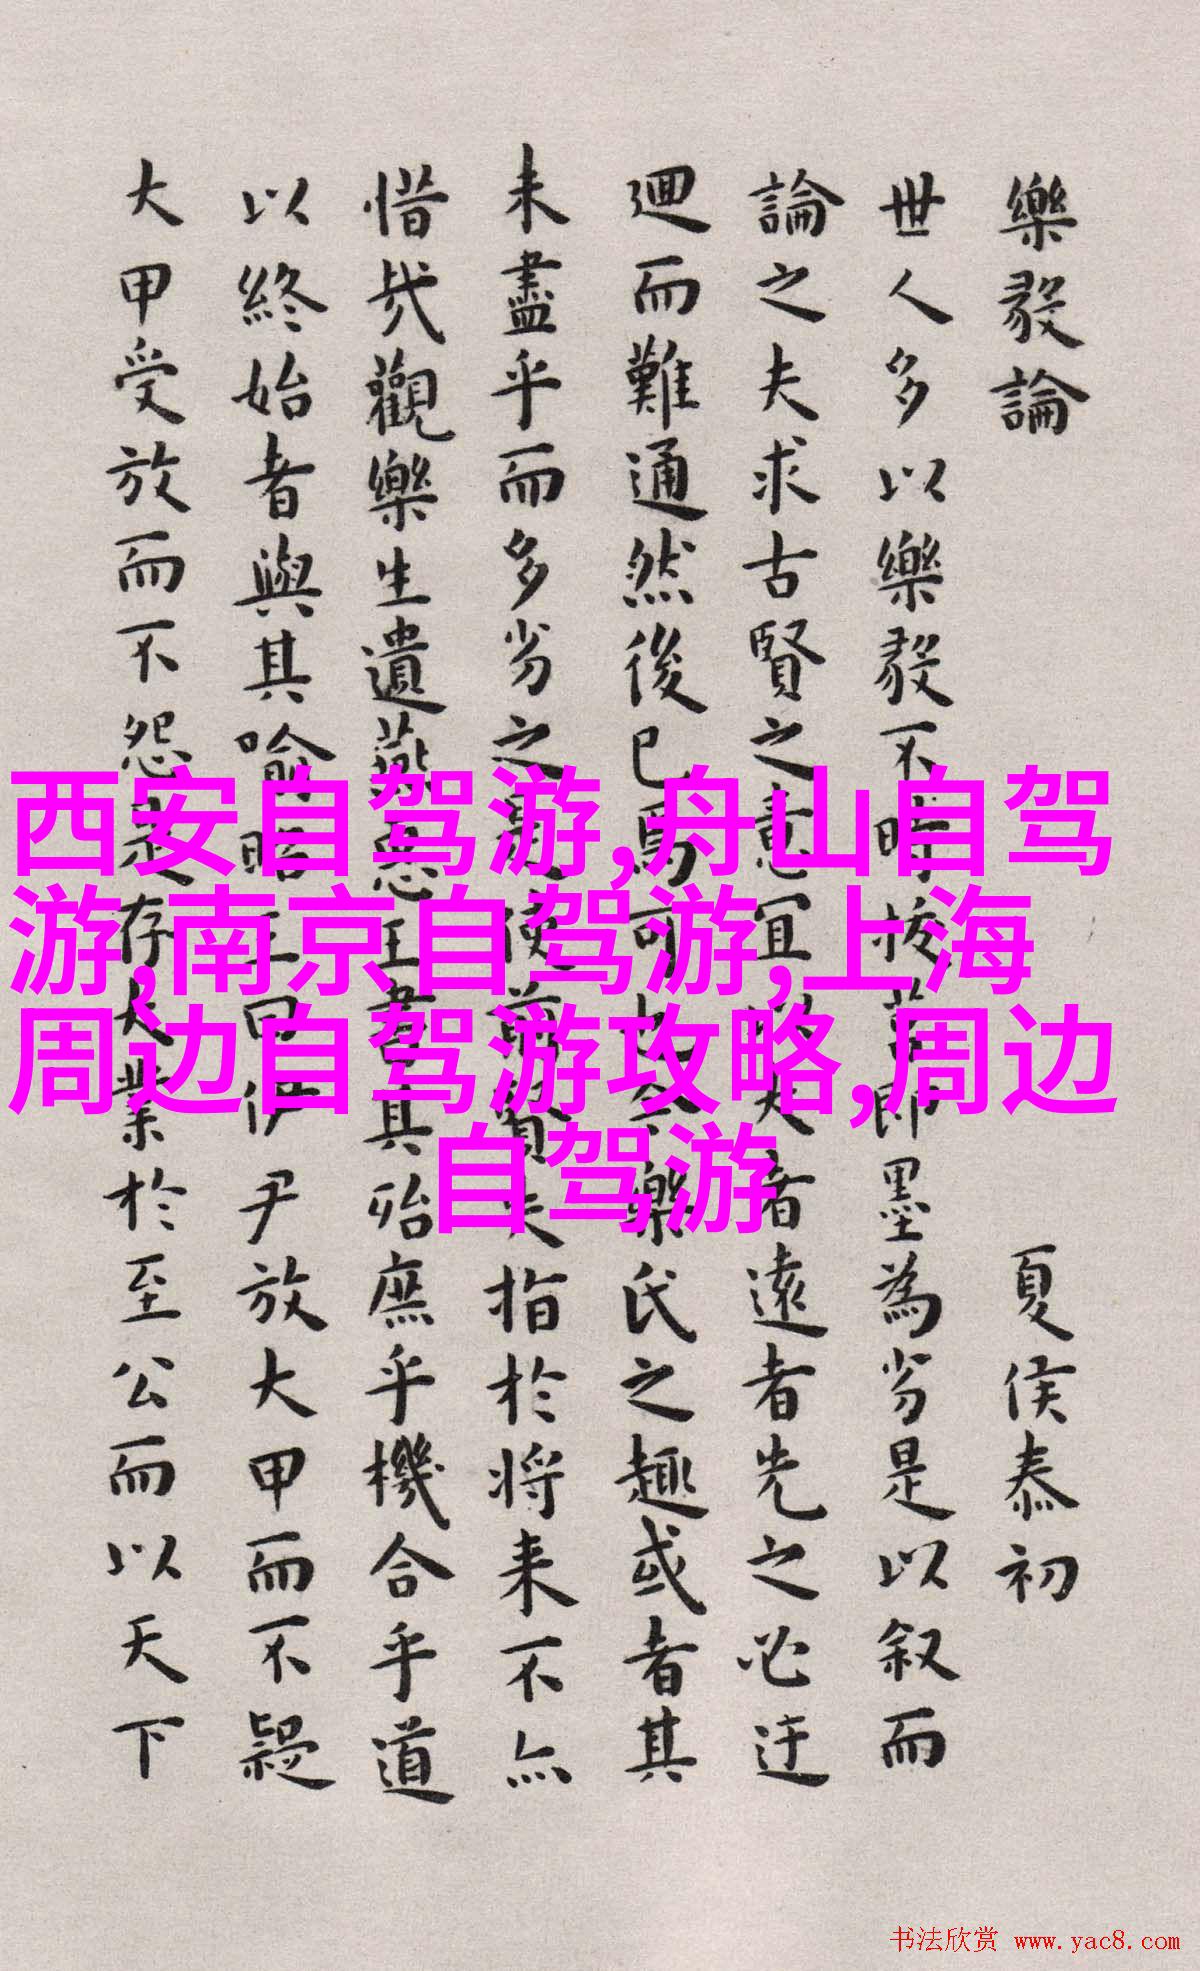 樂毅論 夏侯泰初
世人多以樂毅不時拔莒即墨為劣是以叙而
論之夫求古賢之意宜以大者遠者先之必迂
迴而難通然後已焉可也今樂氏之趣或者其
未盡乎而多劣之是使前賢失指於將来不亦
惜哉觀樂生遺燕惠王書其殆庶乎機合乎道
以終始者與其喻昭王曰伊尹放大甲而不疑
大甲受放而不怨是存大業於至公而以天下
西安自驾游,舟山自驾
游,南京自驾游,上海
周边自驾游攻略,周边
自驾游
书法欣赏 www.yac8.com